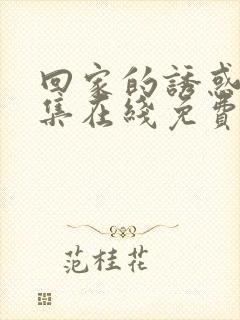 回家的誘惑
集在綫免費
范桂花